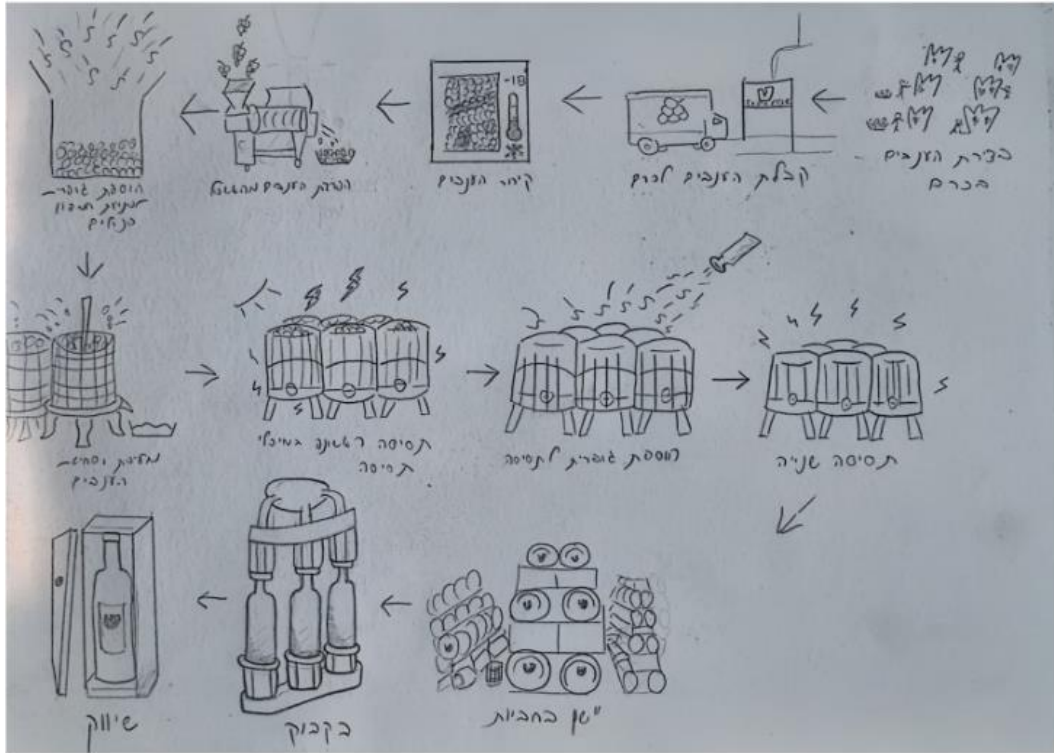 בצירת הענבים
בכרם
קבלת הענבים לכרם
-18
קירור הענבים
הפרדת הענבים מהאשכול
הוספת גופרית
למניעת חמצון
מעיכת וסחיטת
הענבים
תסיסה ראשונה במיכלי
תסיסה
הוספת גופרית לתסיסה
תסיסה שנייה
יישון בחביות
בקבוק
שיווק